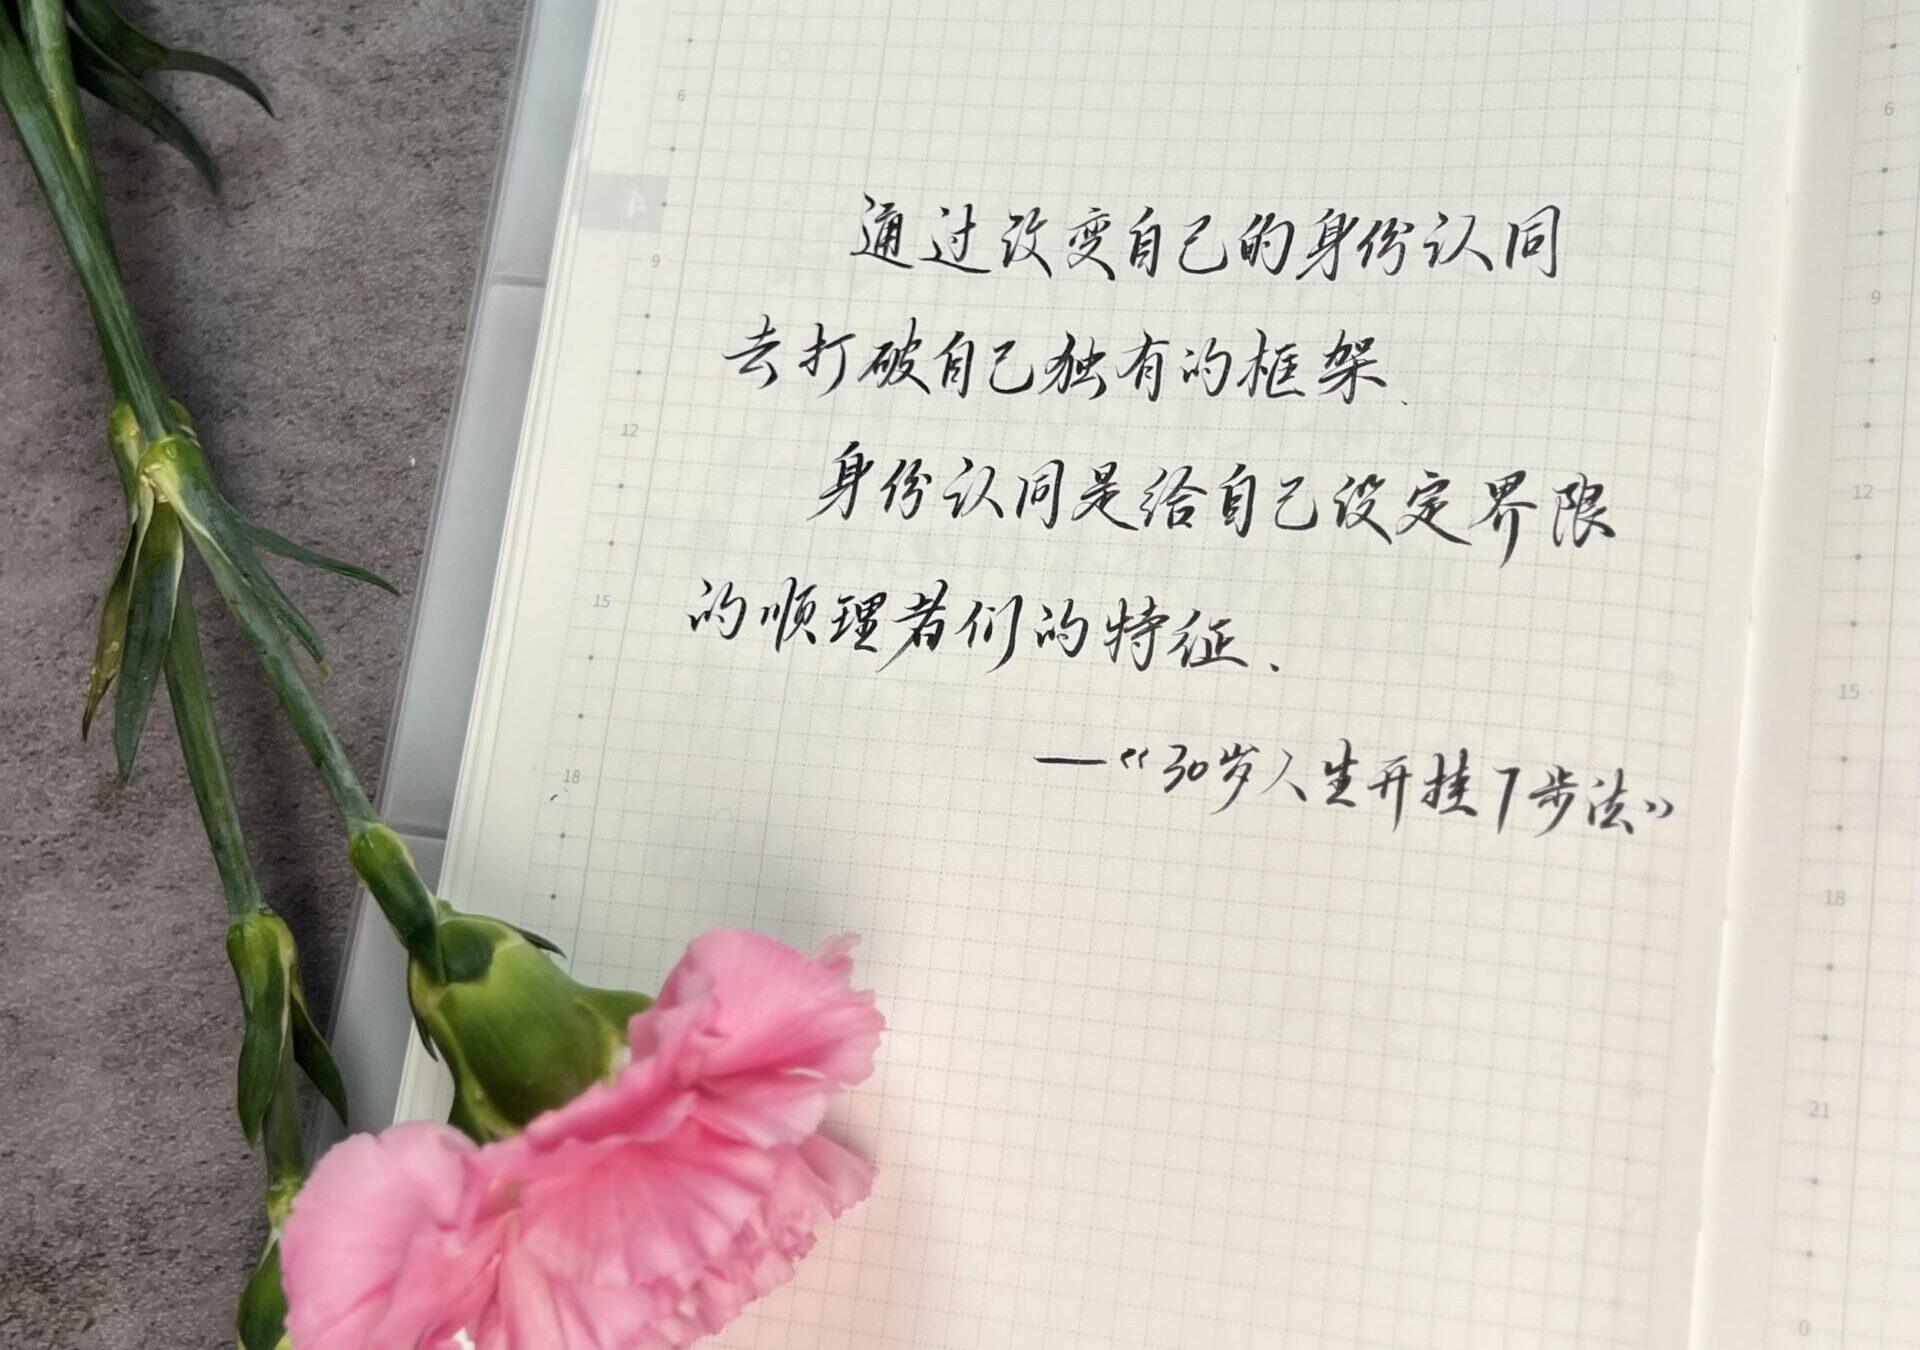 通过改变自己的身份认同
去打破自己独有的框架、
身份认同是给自己设定界限
的顺理者们的特征、
—《30岁人生开挂7步法》
4
6
9
12
15
18
6
9
12
15
18
21
0